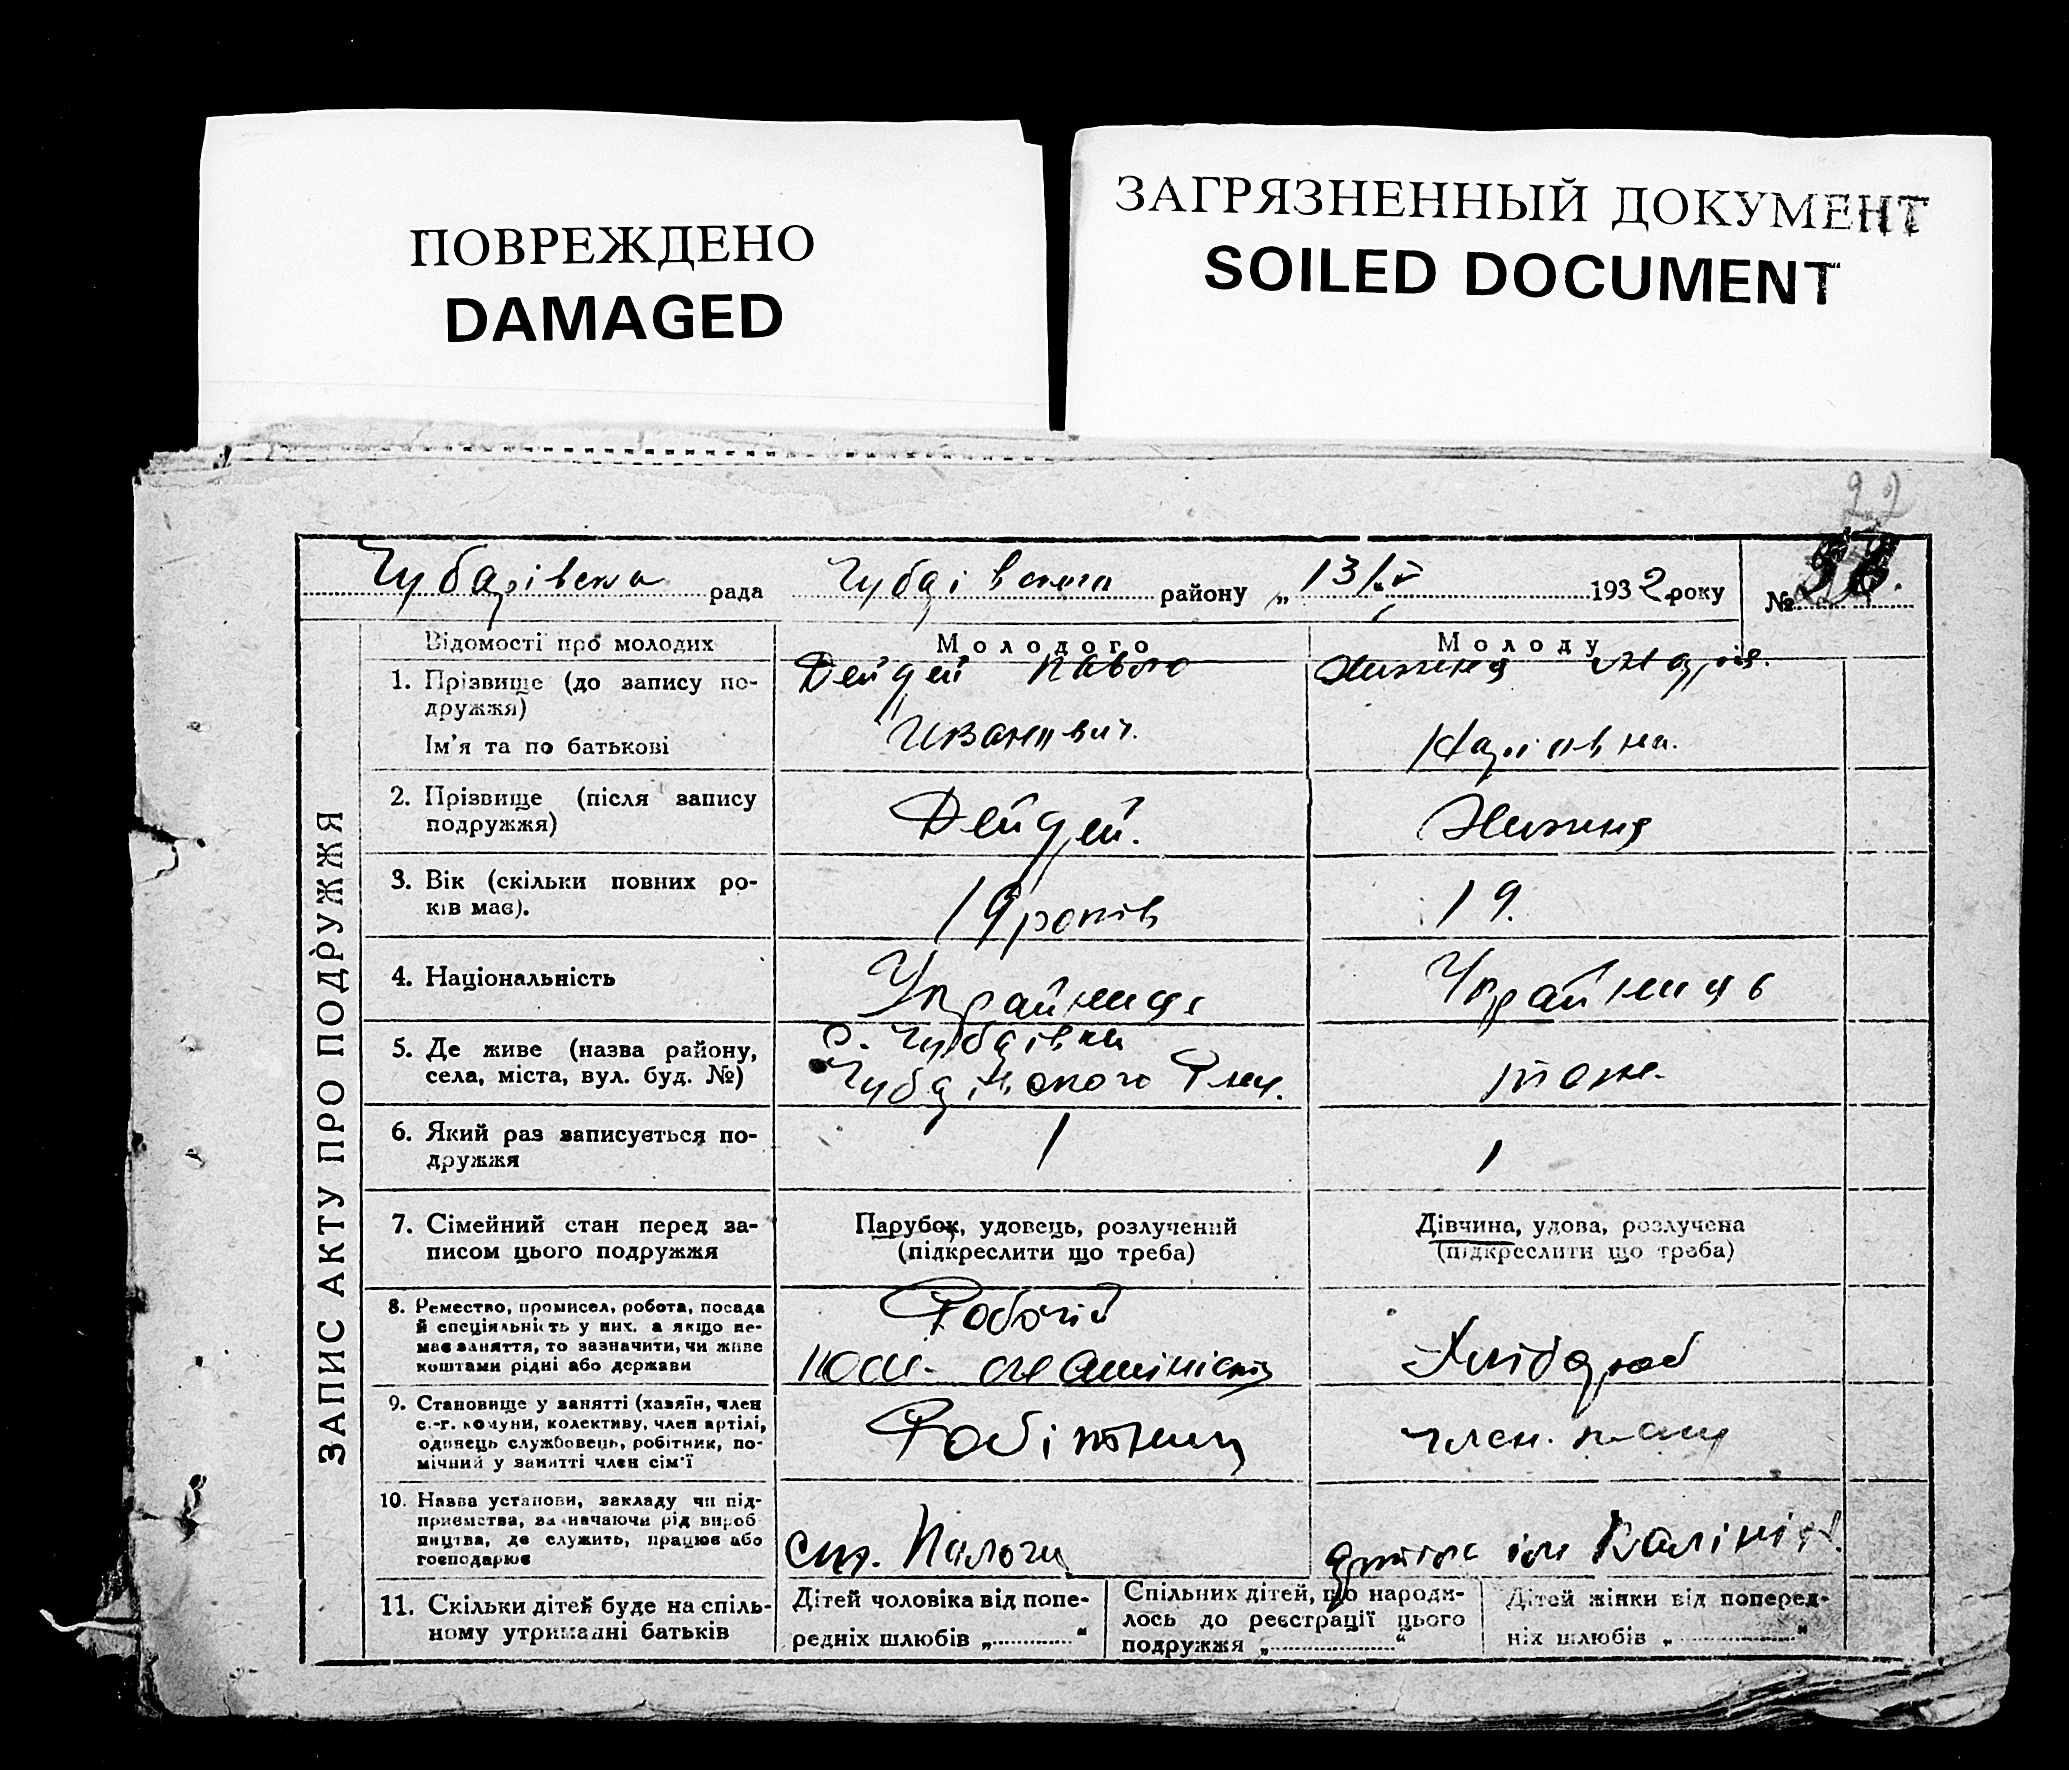 ПОВРЕЖДЕНО
DAMAGED
ЗАГРЯЗНЕННЫЙ ДОКУМЕНТ
SOILED DOCUMENT
22
Чубарівська рада Чубарівського району „13/V 1932 року №
ЗАПИС АКТУ ПРО ПОДРУЖЖЯ
Відомості про молодих
Молодого
Молоду
1. Прізвище (до запису по-
дружжя)
Ім'я та по батькові
Дейдей Павло
Иванович.
Марія.
Карповна.
2. Прізвище (після запису
подружжя)
Дейдей.
3. Вік (скільки повних ро-
ків має).
19 років
19.
4. Національність
Українець
Українець
5. Де живе (назва району,
села, міста, вул. буд. №)
с. Чубарівка
Чубарівського
тоже.
6. Який раз записується по-
дружжя
1
1
7. Сімейний стан перед за-
писом цього подружжя
Парубок, удовець, розлучений
(підкреслити що треба)
Дівчина, удова, розлучена
(підкреслити що треба)
8. Ремество, промисел, робота, посада
й спеціяльність у них, а якщо не-
має заняття, то зазначити, чи живе
коштами рідні або держави
Робочій
Хлібороб
9. Становище у занятті (хазяїн, член
с.-г. комуни, колективу, член артілі,
одинець службовець, робітник, по-
мічний у занятті член сім'ї
Робітник
член.
10. Назва установи, закладу чи під-
приємства, зазначаючи рід вироб
ництва, де служить, працює або
господарює
ст. Пологи
артіль ім Калініна.
11. Скільки дітей буде на спіль-
ному утриманні батьків
Дітей чоловіка від попе-
редніх шлюбів „ “
Спільних дітей, що народи-
лось до реєстрації цього
подружжя „ “
Дітей жінки від поперед-
ніх шлюбів „ “